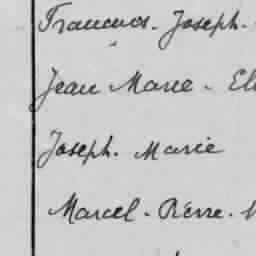 Francois. Joseph.
Jean Marie. El
Joseph. Marie
Marcel. Pierre.